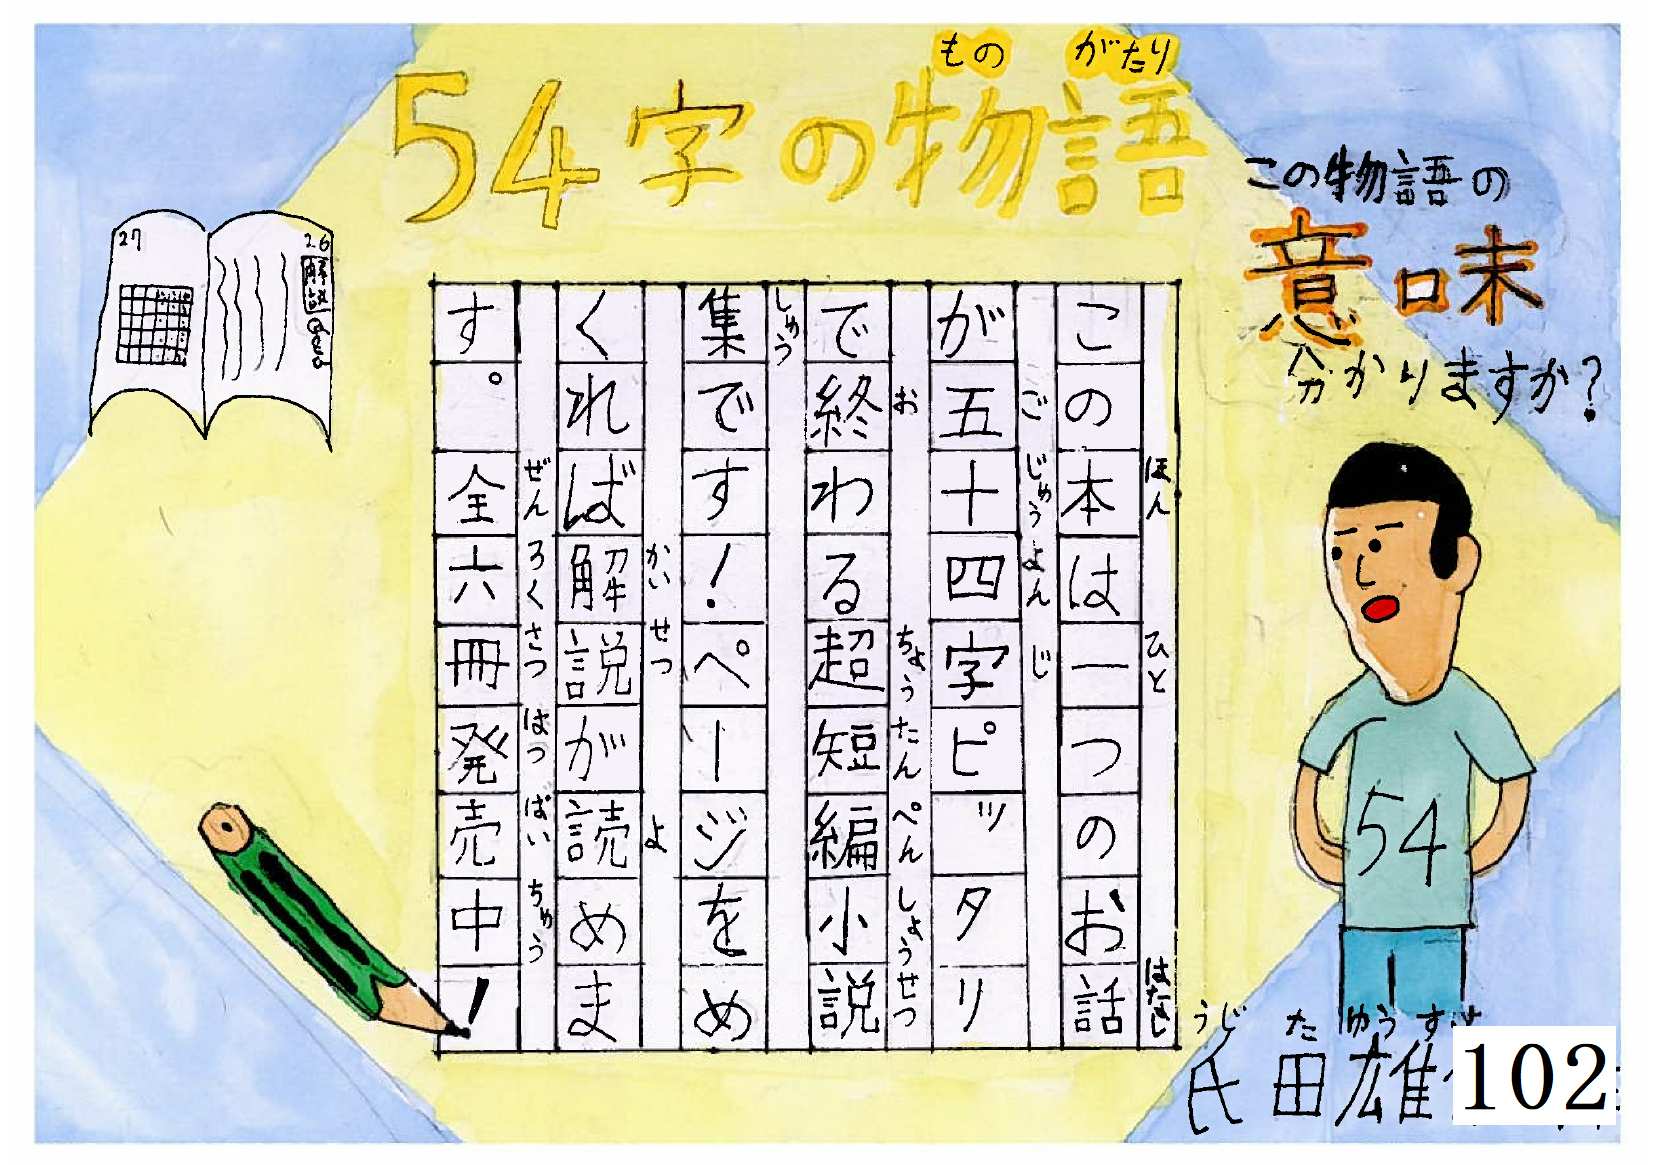 もの がたり
54字の物語
この物語の
意味
分かりますか?
ほん ひと はなし
この本は一つのお話
ご じゅう よん じ
が五十四字ピッタリ
お ちょう たん ぺん しょう せつ
で終わる超短編小説
しゅう
集です！ページをめ
かい せつ よ
くれば解説が読めま
ぜん ろく さつ はつ ばい ちゅう
す。全六冊発売中！
27
26
解説
54
うじ た ゆう
氏田雄
102